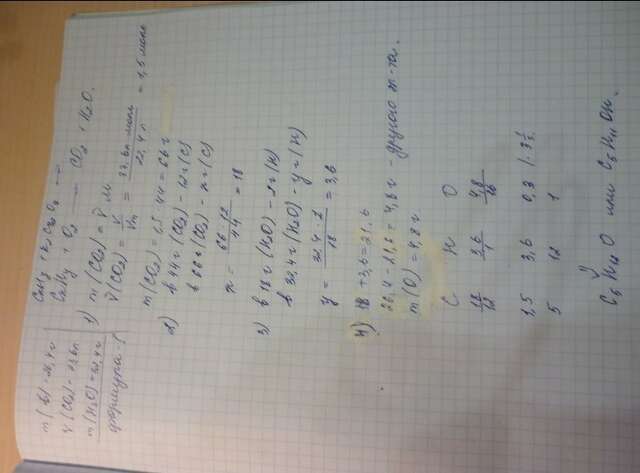 m(в)=26,4г
V(CO₂)=33,6л
m(H₂O)=32,4г
формула-?
CxHy + O₂ — CO₂ + H₂O.
1) m(CO₂) = ν·M
ν(CO₂) = V/Vm = 33,6л·моль/22,4л = 1,5 моль
m(CO₂) = 1,5·44 = 66г
2) в 44г (CO₂) - 12г(C)
в 66г(CO₂) - xг(C)
x = 66·12/44 = 18
3) в 18г(H₂O) - 2г(H)
в 32,4г(H₂O) - yг(H)
y = 32,4·2/18 = 3,6
4) 18+3,6=21,6
26,4-21,6=4,8г - другого
m(O)=4,8г
C H O
18/12 3,6/1 4,8/16
1,5 3,6 0,3
5 12 1
C₅H₁₂O или C₅H₁₁OH.